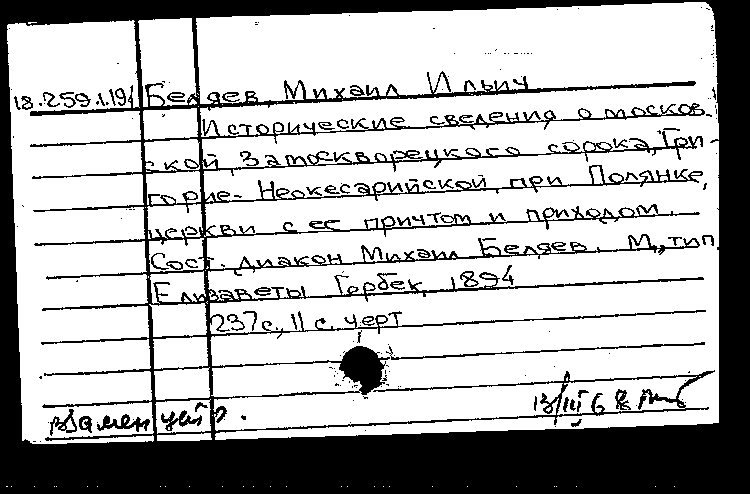 18.259.1.191 Беляев, Михаил Ильич
Исторические сведения о москов-
ской, Замоскворецкого сорока, Гри-
горие-Неокесарийской, при Полянке,
церкви с ее причтом и приходом.
Сост. диакон Михаил Беляев. М., тип.
Елизаветы Гербек, 1894
237 с., 11 с. черт
взамен
13/III 68